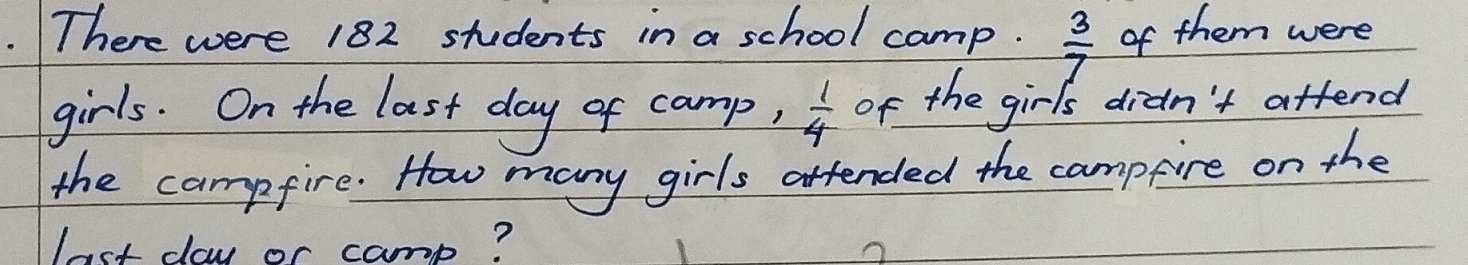 . There were 182 students in a school camp. 3/7 of them were
girls. On the last day of camp, 1/4 of the girls didn't attend
the campfire. How many girls attended the campfire on the
last day of camp?